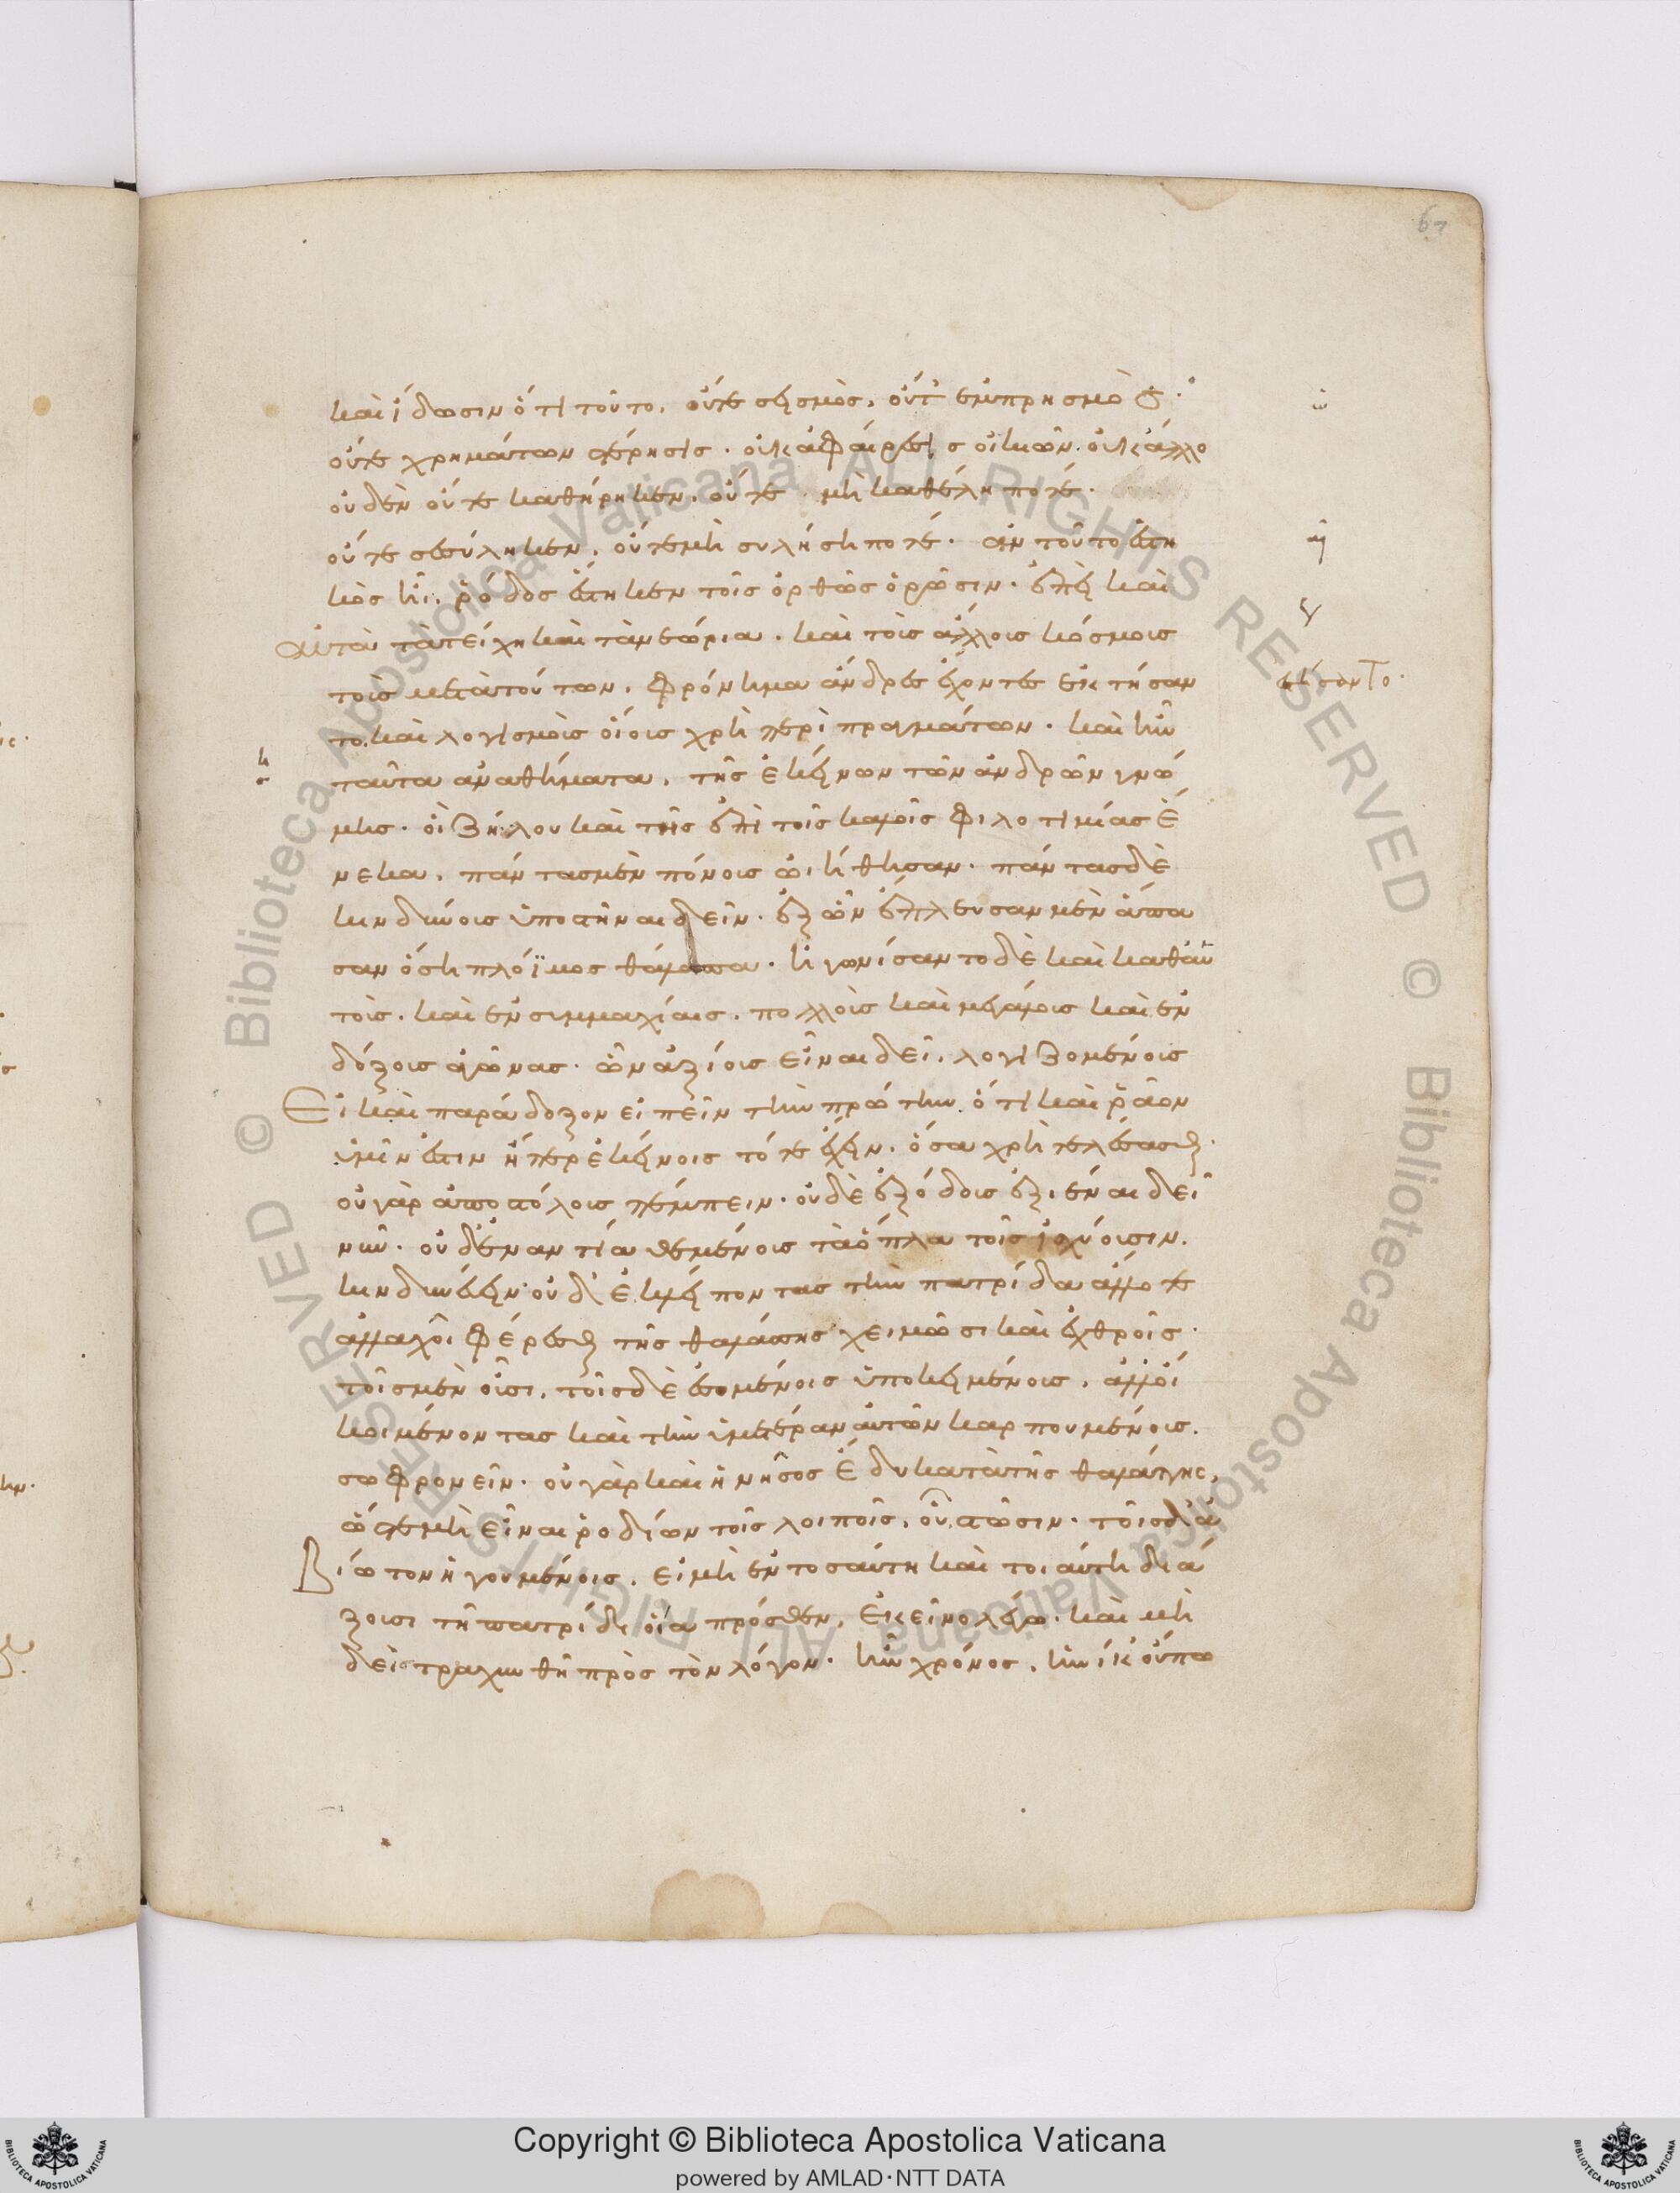 67
καὶ ἴδωσιν ὅτι τοῦτο. οὔτε σεισμὸς, οὔτ' ἐμπρησμὸς.
οὔτε χρημάτων στέρησις. οὐκ ἀφαίρεσις οἰκιῶν. οὐκ ἄλλο
οὐδὲν οὔτε καθήρηκεν, οὔτε μὴ καθέλῃ ποτέ.
οὔτε σεσύληκεν, οὔτε μὴ συλήσῃ ποτέ. ἀν τοῦτο ἑστη
κὸς ᾖ, ῥόδος ἕστηκεν τοῖς ὀρθῶς ὁρῶσιν. ἐπεὶ καὶ
αὐτὰ τὰ τείχη καὶ τὰ νεώρια. καὶ τοῖς ἄλλοις κόσμοις
τοῖς μετὰ τούτων. φρόνημα ἄνδρες ἔχοντες ἐκτήσαν
το. καὶ λογισμοῖς οἵοις χρὴ περὶ πραγμάτων. καὶ ἦν
ταῦτα ἀναθήματα, τῆς ἐκείνων τῶν ἀνδρῶν γνώ
μης. οἳ ζήλου καὶ τῆς ἐπὶ τοῖς καλοῖς φιλοτιμίας ἕ
νεκα, πάντας μὲν πόνους ᾠήθησαν. πάντας δὲ
κινδύνους ὑποστῆναι δεῖν. ἐξ ὧν ἔπλευσαν μὲν ἅπα
σαν ὅση πλόϊμος θάλασσα. ἠγωνίσαντο δὲ καὶ καθ' αὑ
τοὺς. καὶ ἐν συμμαχίαις. πολλοὺς καὶ μεγάλους καὶ ἐν
δόξους ἀγῶνας. ὧν ἀξίους εἶναι δεῖ. λογιζομένους
Εἰ καὶ παράδοξον εἰπεῖν τὴν πρώτην, ὅτι καὶ ῥᾷον
ὑμῖν ἐστιν ἤπερ ἐκείνοις τότε ἔχειν. ὅσα χρὴ τελέσασθαι.
οὐ γὰρ ἀποστόλους πέμπειν. οὐδὲ ἐξόδους ἐξιέναι δεῖ
νῦν. οὐδ' ἐναντία θεμένους τὰ ὅπλα τοῖς ἰσχύουσιν.
κινδυνεύειν οὐδ' ἐκλείποντας τὴν πατρίδα ἄλλοτε
ἀλλαχοῖ φέρεσθαι τῆς θαλάσσης χειμῶσι καὶ ἐχθροῖς.
τοῖς μὲν οὖσι, τοῖς δὲ ἐσομένοις ὑποκειμένους, ἀλλ' οἴ
κοι μένοντας καὶ τὴν ὑμετέραν αὐτῶν καρπουμένους.
σωφρονεῖν. οὐ γὰρ καὶ ἡ νῆσος ἔδυ κατὰ τῆς θαλάττης,
ὥστε μὴ εἶναι ῥοδίων τοῖς λοιποῖς, οὗ στῶσιν. τοῖς δ' ἀ
βίωτον ἡγουμένοις, εἰ μὴ ἐν τοσαύτῃ καὶ τοιαύτῃ διά
ξουσι τῇ πατρίδι οἵα πρόσθεν, ἐκεῖνο λέγω. καὶ μὴ
δεὶς τραχυνθῇ πρὸς τὸν λόγον. ἦν χρόνος, ἡνίκ' οὔπω